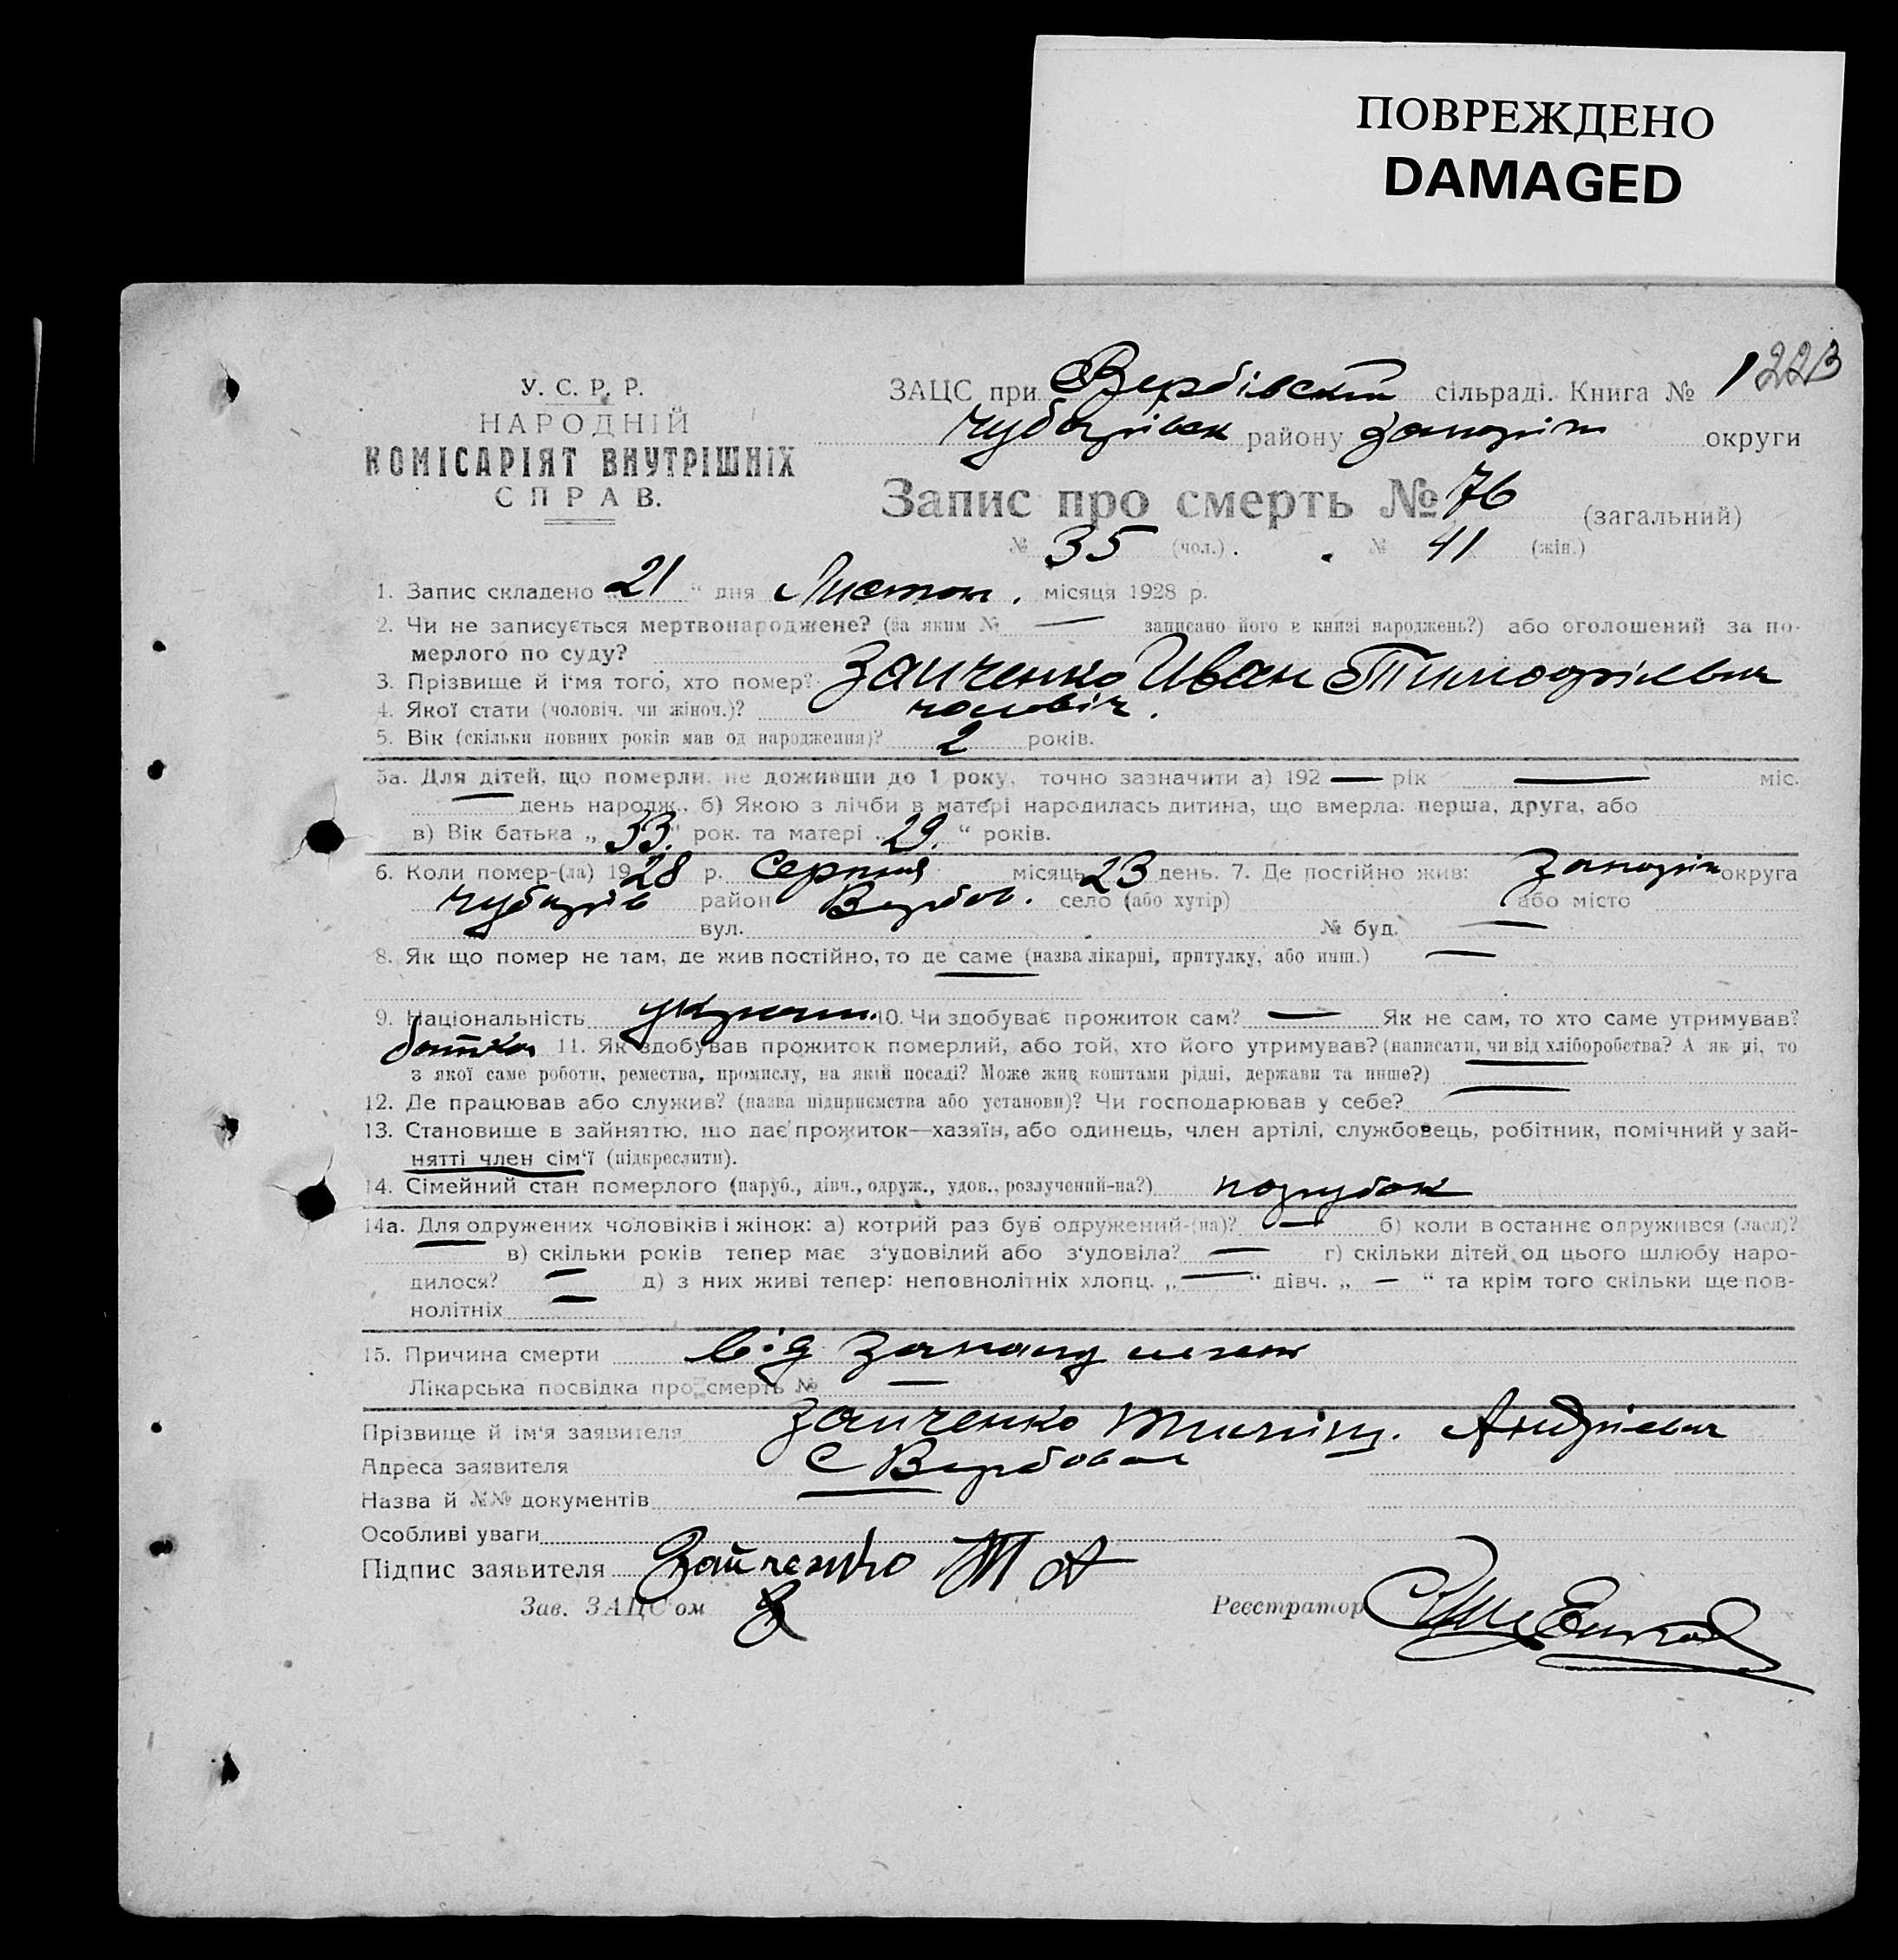 ПОВРЕЖДЕНО
DAMAGED
223
У. С. Р. Р.
НАРОДНІЙ
КОМІСАРІЯТ ВНУТРІШНІХ
СПРАВ.
ЗАЦС при Вербівській сільраді. Книга № 1
Чубарівськ району Запоріж округи
Запис про смерть № 76 (загальний)
№ 35 (чол.) . № 41 (жін.)
1. Запис складено 21 “ дня Листоп. місяця 1928 р.
2. Чи не записується мертвонароджене? (за яким № — записано його в книзі народжень?) або оголошений за по-
мерлого по суду?
3. Прізвище й ім'я того, хто помер? Заиченко Иван Тимофіевич
4. Якої стати (чоловіч. чи жіноч.)? чоловіч.
5. Вік (скільки повних років мав од народження)? 2 років.
5а. Для дітей, що померли, не доживши до 1 року, точно зазначити а) 192 — рік — міс.
— день народж. б) Якою з лічби в матері народилась дитина, що вмерла: перша, друга, або
в) Вік батька „ 33. “ рок. та матері „ 29. “ років.
6. Коли помер-(ла) 1928 р. Серпня місяць 23 день. 7. Де постійно жив: Запоріж округа
Чубарів район Вербов. село (або хутір) або місто
вул. № буд. —
8. Як що помер не там, де жив постійно, то де саме (назва лікарні, притулку, або инш.) —
9. Національність україн. 10. Чи здобуває прожиток сам? — Як не сам, то хто саме утримував?
батько 11. Як здобував прожиток померлий, або той, хто його утримував? (написати, чи від хліборобства? А як ні, то
з якої саме роботи, ремества, промислу, на якій посаді? Може жив коштами рідні, держави та инше?) —
12. Де працював або служив? (назва підприємства або установи)? Чи господарював у себе? —
13. Становище в зайняттю, що дає прожиток—хазяїн, або одинець, член артілі, службовець, робітник, помічний у зай-
нятті член сім'ї (підкреслити).
14. Сімейний стан померлого (паруб., дівч., одруж., удов., розлучений-на?) парубок
14а. Для одружених чоловіків і жінок: а) котрий раз був одружений-(на)? — б) коли в останнє одружився (лася)?
— в) скільки років тепер має з'удовілий або з'удовіла? — г) скільки дітей од цього шлюбу наро-
дилося? — д) з них живі тепер: неповнолітніх хлопц. „ — “ дівч. „ — “ та крім того скільки ще пов-
нолітніх —
15. Причина смерти від запалу легень
Лікарська посвідка про смерть № —
Прізвище й ім'я заявителя Заиченко Андріевич
Адреса заявителя с Вербове
Назва й №№ документів
Особливі уваги
Підпис заявителя Зайченко Т А
Зав. ЗАЦС'ом Реєстратор